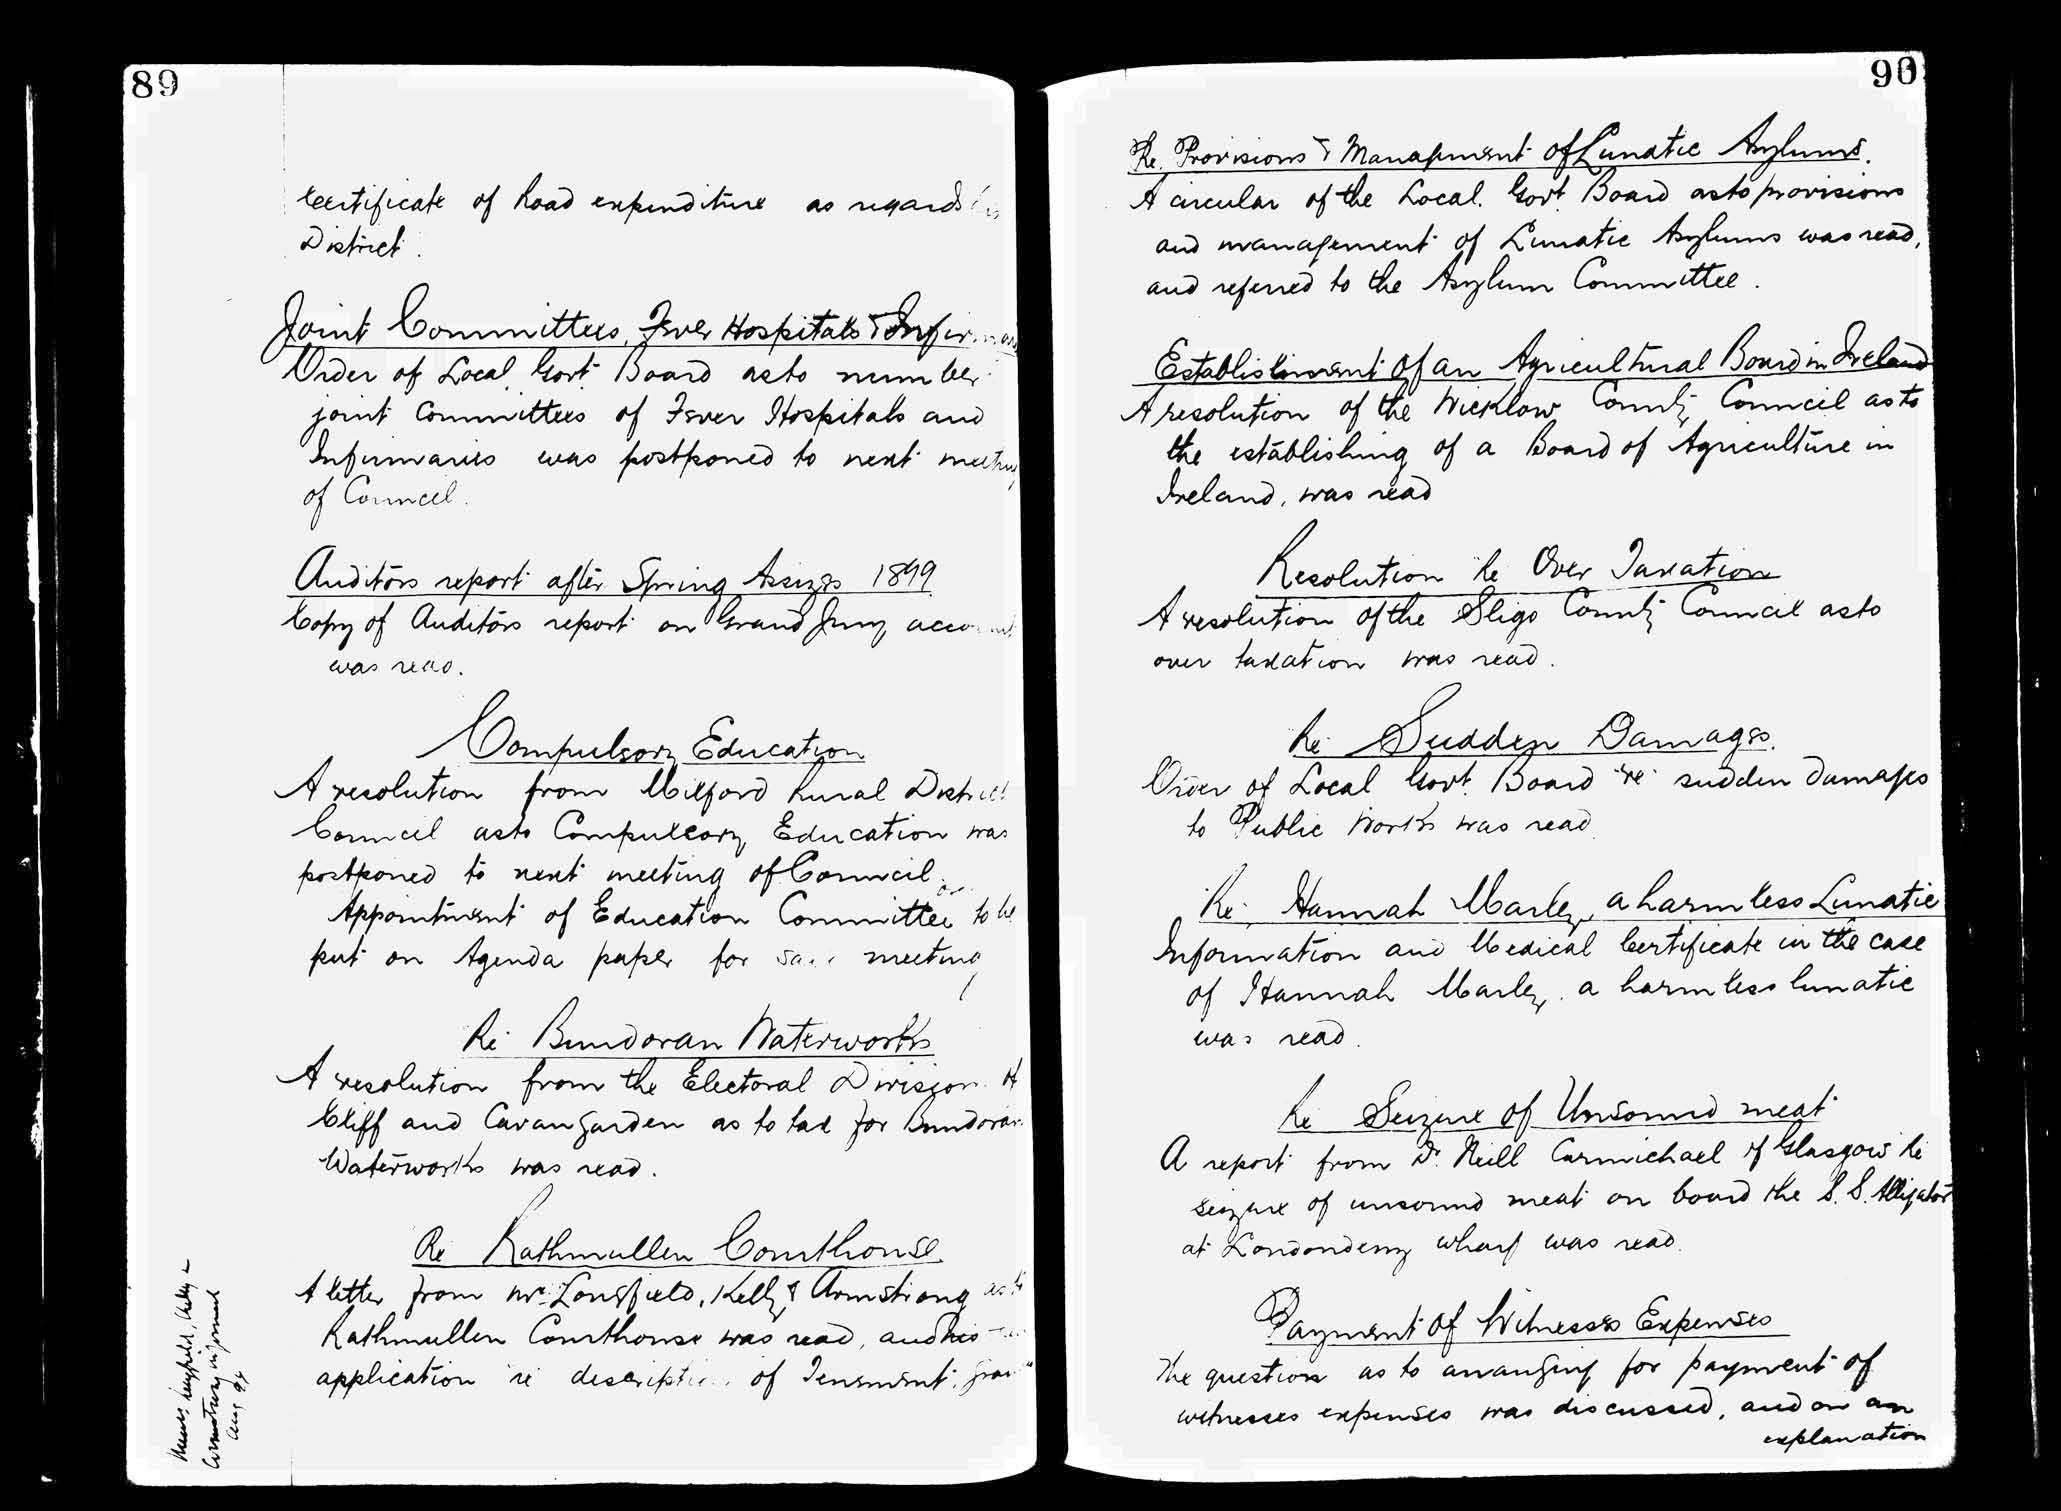 89
Certificate of Road expenditure as regards
District.
Joint Committees, Fever Hospitals &
Order of Local Govt Board as to number
joint Committees of Fever Hospitals and
Infirmaries was postponed to next meeting
of Council.
Auditors report after Spring Assizes 1899
Copy of Auditors report on Grand Jury
was read.
Compulsory Education
A resolution from Milford Rural District
Council as to Compulsory Education was
postponed to next meeting of Council.
Appointment of Education Committee to be
put on Agenda paper for meeting
Re Bundoran Waterworks
A resolution from the Electoral Division of
Cliff and Cavangarden as to tax for Bundoran
Waterworks was read.
Re Rathmullen Courthouse
A letter from Longfield, Kelly & Armstrong as to
Rathmullen Courthouse was read, and his
application re of Tenement
90
Re. Provisions & Management of Lunatic Asylums.
A circular of the Local Govt Board as to provisions
and management of Lunatic Asylums was read,
and referred to the Asylum Committee.
Establishment of an Agricultural Board in Ireland
A resolution of the Wicklow County Council as to
the establishing of a Board of Agriculture in
Ireland, was read
Resolution Re Over Taxation
A resolution of the Sligo County Council as to
over taxation was read.
Re Sudden Damages.
Order of Local Govt. Board re sudden damages
to Public Works was read
Re Hannah Marley, a harmless Lunatic
Information and Medical Certificate in the case
of Hannah Marley, a harmless lunatic
was read.
Re Seizure of Unsound meat
A report from Dr. Neill Carmichael of Glasgow Re
seizure of unsound meat on board the S.S. Alligator
at Londonderry wharf was read.
Payment of Witnesses Expenses
The question as to arranging for payment of
witnesses expenses was discussed, and on an
explanation